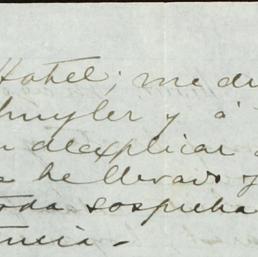 Hotel; me di
Schuyler y á
a explicar
he llevado y
toda sospecha
tancia.-